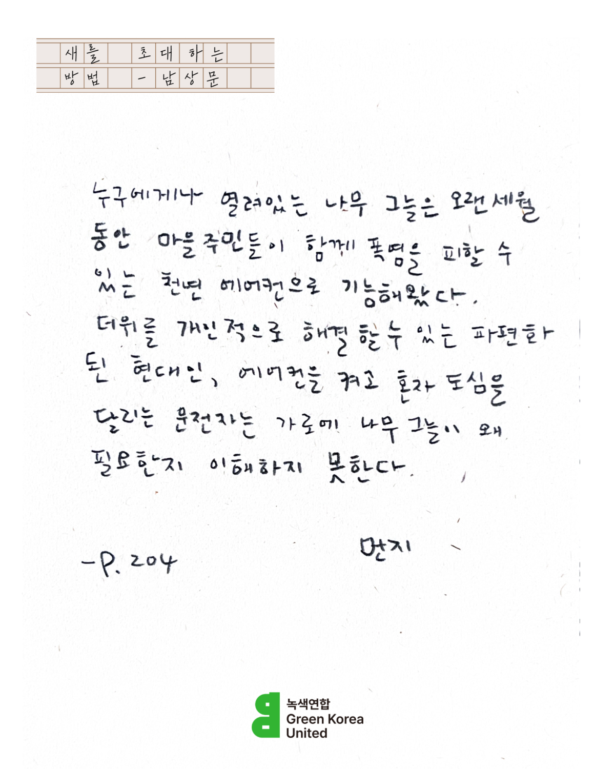 새를 초대하는
방법 - 남상문
누구에게나 열려있는 나무 그늘은 오랜세월
동안 마을주민들이 함께 폭염을 피할 수
있는 천연 에어컨으로 기능해왔다.
더위를 개인적으로 해결할수 있는 파편화
된 현대인, 에어컨을 켜고 혼자 도심을
달리는 운전자는 가로에 나무 그늘이 왜
필요한지 이해하지 못한다.
-P. 204 먼지
녹색연합
Green Korea
United